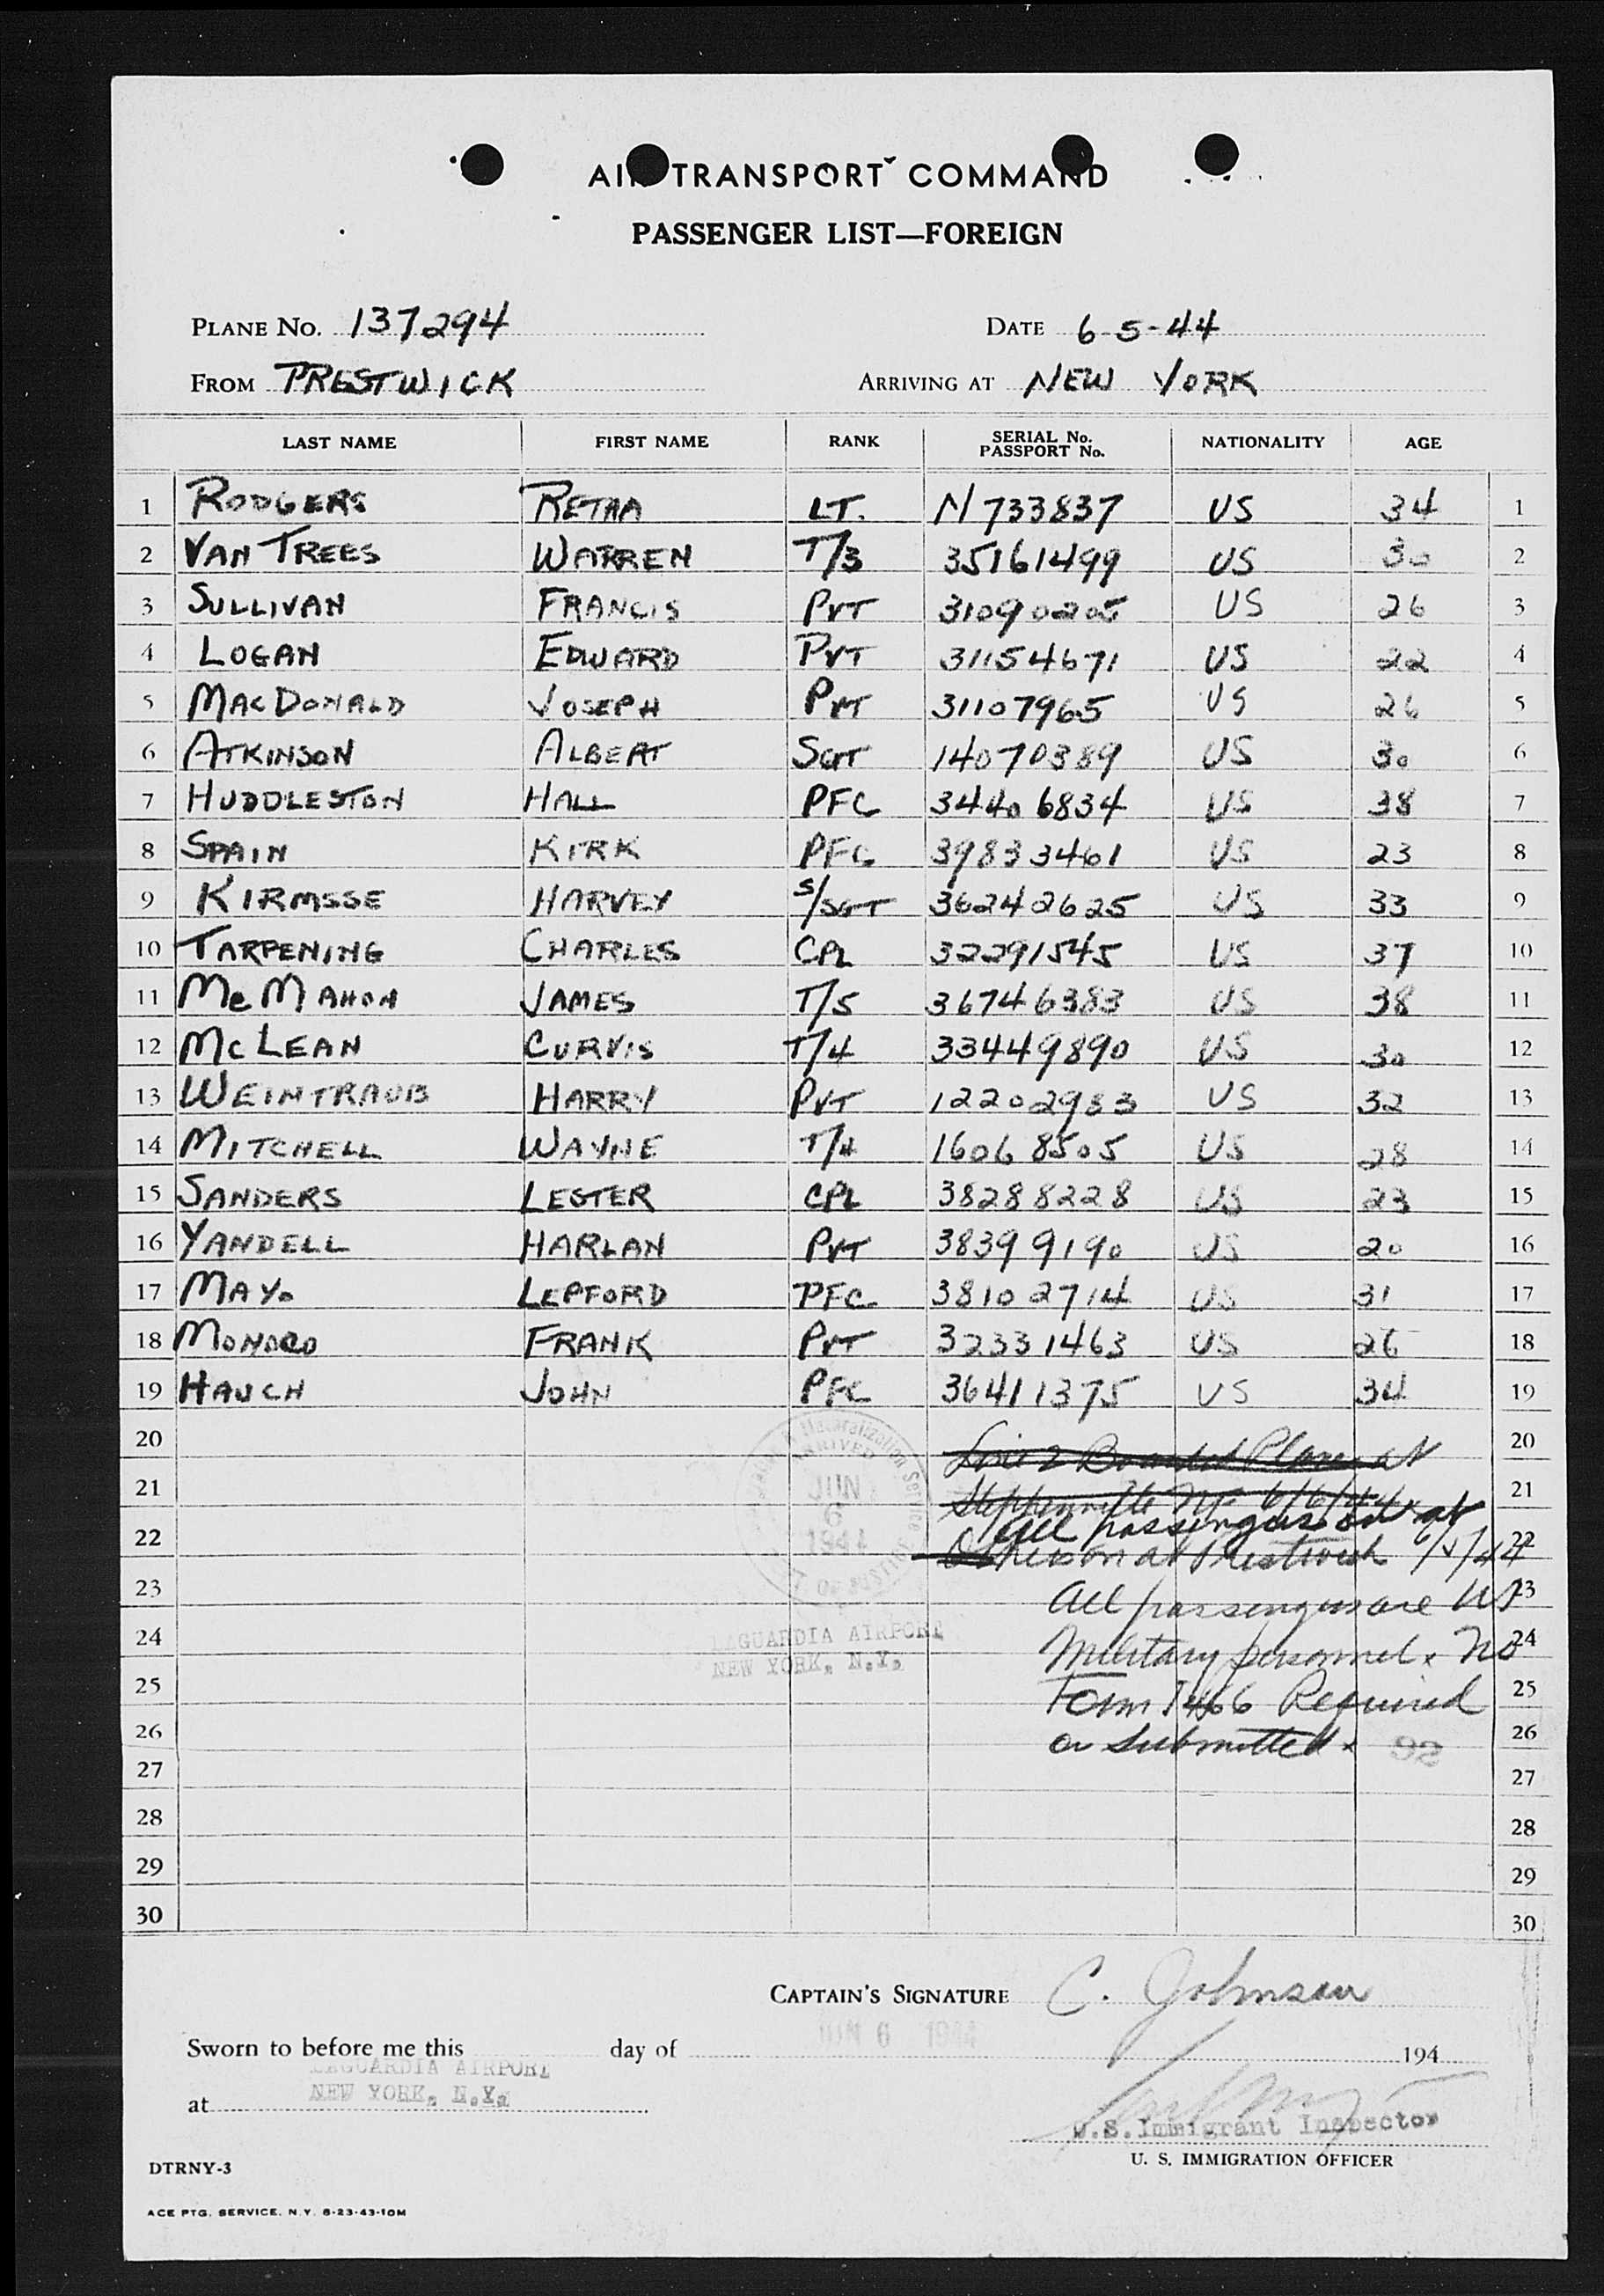 AIR TRANSPORT COMMAND
PASSENGER LIST—FOREIGN
PLANE NO. 137294 DATE 6-5-44
FROM PRESTWICK ARRIVING AT NEW YORK
LAST NAME FIRST NAME RANK SERIAL No. PASSPORT No. NATIONALITY AGE
1 RODGERS RETHA LT. N 733837 US 34 1
2 VAN TREES WARREN T/3 35161499 US 30 2
3 SULLIVAN FRANCIS PVT 31090205 US 26 3
4 LOGAN EDWARD PVT 31154671 US 22 4
5 MACDONALD JOSEPH PVT 31107965 US 26 5
6 ATKINSON ALBERT SGT 14070389 US 30 6
7 HUDDLESTON HALL PFC 34406834 US 38 7
8 SPAIN KIRK PFC 39833461 US 23 8
9 KIRMSSE HARVEY S/SGT 36242625 US 33 9
10 TARPENING CHARLES CPL 32291545 US 37 10
11 McMAHON JAMES T/5 36746383 US 38 11
12 McLEAN CURVIS T/4 33449890 US 30 12
13 WEINTRAUB HARRY PVT 12202983 US 32 13
14 MITCHELL WAYNE T/4 16068505 US 28 14
15 SANDERS LESTER CPL 38288228 US 23 15
16 YANDELL HARLAN PVT 38399190 US 20 16
17 MAYO LEPFORD PFC 38102714 US 31 17
18 MONACO FRANK PVT 32331463 US 26 18
19 HAUCH JOHN PFC 36411375 US 34 19
20 Line 2 Boarded Plane at 20
21 Stephenville NF 6/6/44 21
All passengers
22 at Prestwick 6/5/44 22
23 All passengers are US 23
24 Military personnel. No 24
25 Form I 466 Required 25
26 or Submitted. 92 26
27 27
28 28
29 29
30 30
& Naturalization Service
ARRIVED
JUN
6
1944
LAGUARDIA AIRPORT
NEW YORK, N.Y.
CAPTAIN'S SIGNATURE C. Johnson
JUN 6 1944
Sworn to before me this day of 194
LAGUARDIA AIRPORT
at NEW YORK, N.Y.
U.S. Immigrant Inspector
U. S. IMMIGRATION OFFICER
DTRNY-3
ACE PTG. SERVICE. N.Y. 8-23-43-10M